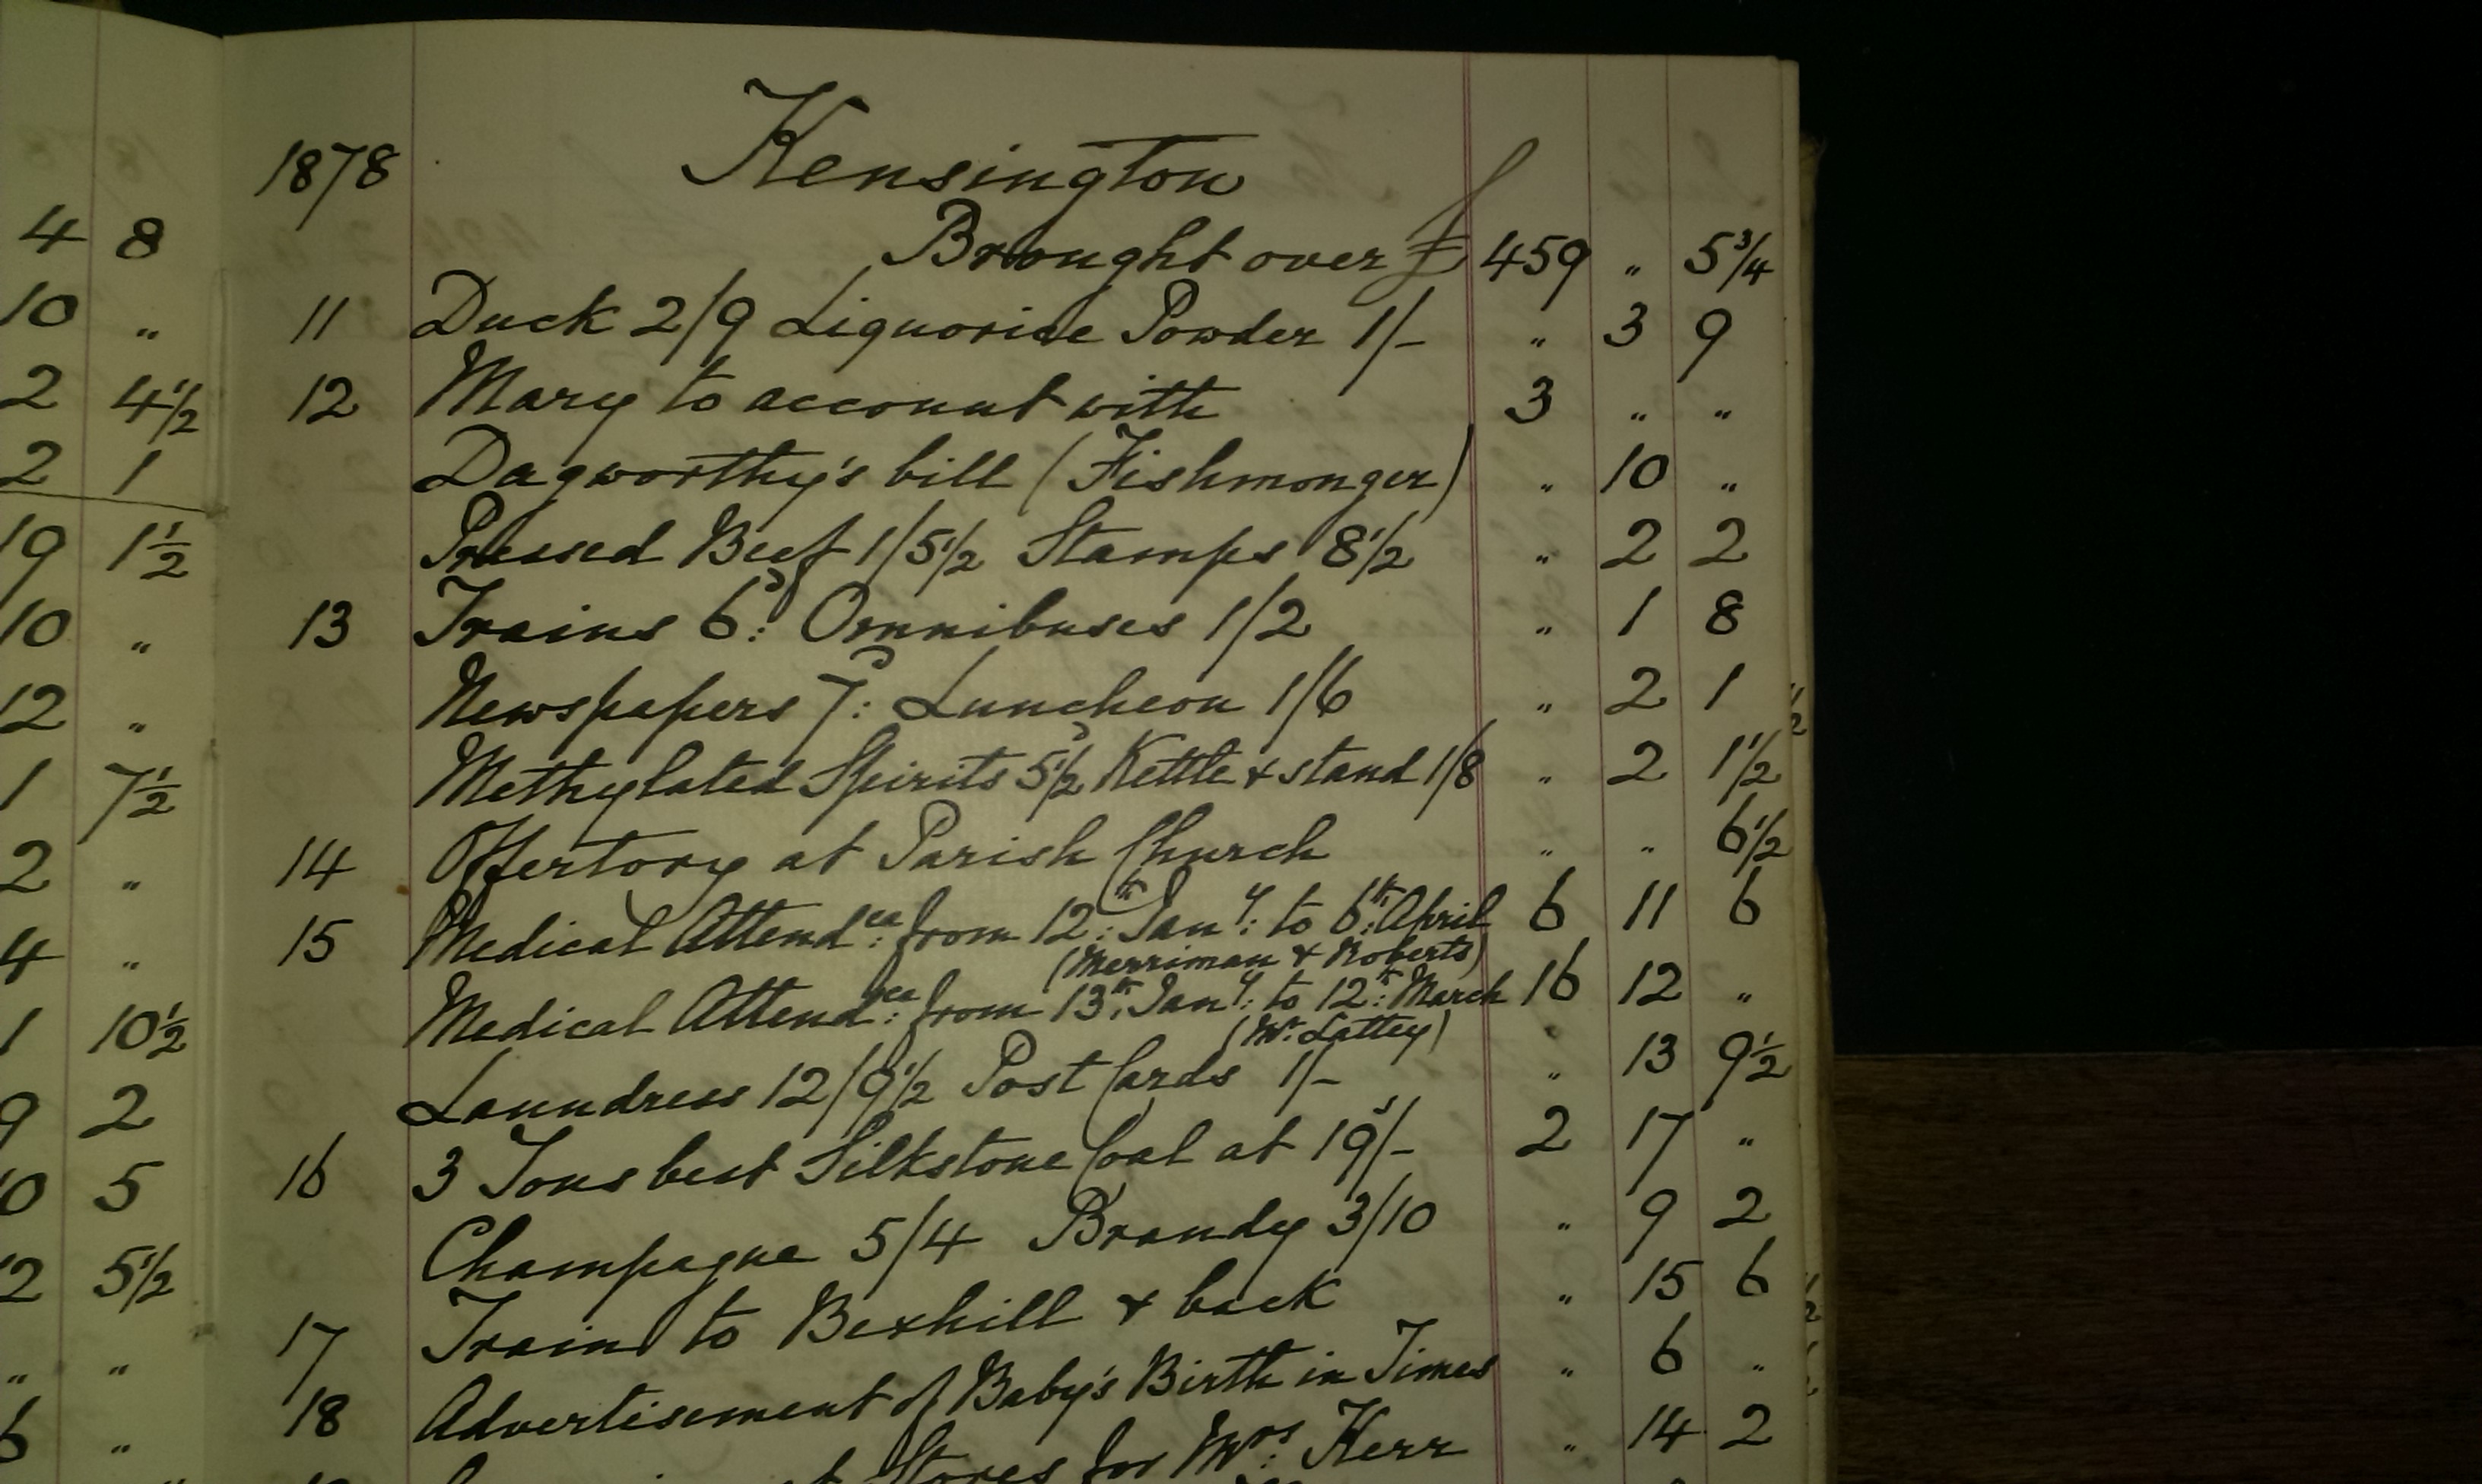 4 8
10 "
2 4½
2 1
19 1½
10 "
12 "
1 7½
2 "
4 "
1 10½
9 2
10 5
2 5½
" "
6 "
1878 Kensington
Brought over £ 459 " 5¾
11 Duck 2/9 Liquorice Powder 1/- " 3 9
12 Mary to account with 3 " "
Dagworthy's bill (Fishmonger) " 10 "
Pressed Beef 1/5½ Stamps 8½ " 2 2
13 Trains 6d: Omnibuses 1/2 " 1 8
Newspapers 7d: Luncheon 1/6 " 2 1
Methylated Spirits 5½d Kettle & stand 1/8 " 2 1½
14 Offertory at Parish Church " " 6½
15 Medical Attendce: from 12th: Jany: to 6th: April 6 11 6
(Merriman & Roberts)
Medical Attendce: from 13th: Jany: to 12th: March 16 12 "
(Mr. Lattey)
Laundress 12/9½ Post Cards 1/- " 13 9½
16 3 Tons best Silkstone Coal at 19s/- 2 17 "
Champagne 5/4 Brandy 3/10 " 9 2
17 Train to Bexhill & back " 15 6
18 Advertisement of Baby's Birth in Times " 6 "
Stores for Mrs: Kerr " 14 2